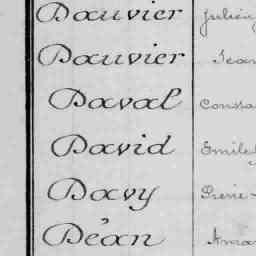 Dauvier Julien
Dauvier Jean
Daval Consta
David Emile
Davy Pierre
Déan Aman